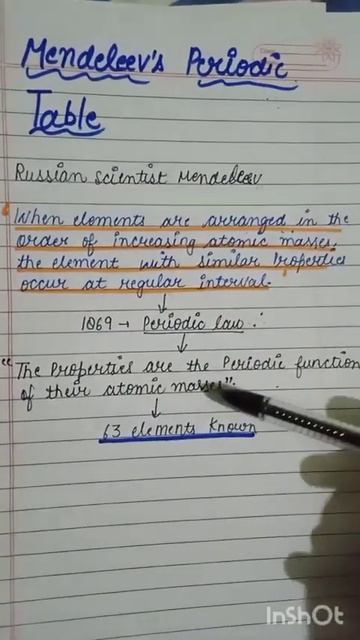 Mendeleev's Periodic
Table
Russian scientist Mendeleev
"When elements are arranged in the
order of increasing atomic masses,
the element with similar Properties
occur at regular interval.
1869 → Periodic law :
"The Properties are the Periodic function
of their atomic masses".
63 elements known
InShOt